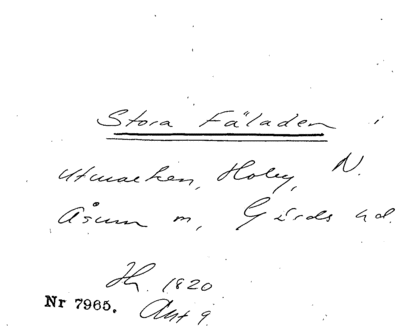 Stora Fäladen i
Utmarken, Holey, N.
Åsum m, Gärds hd.
Ih. 1820
Nr 7965. Akt 9